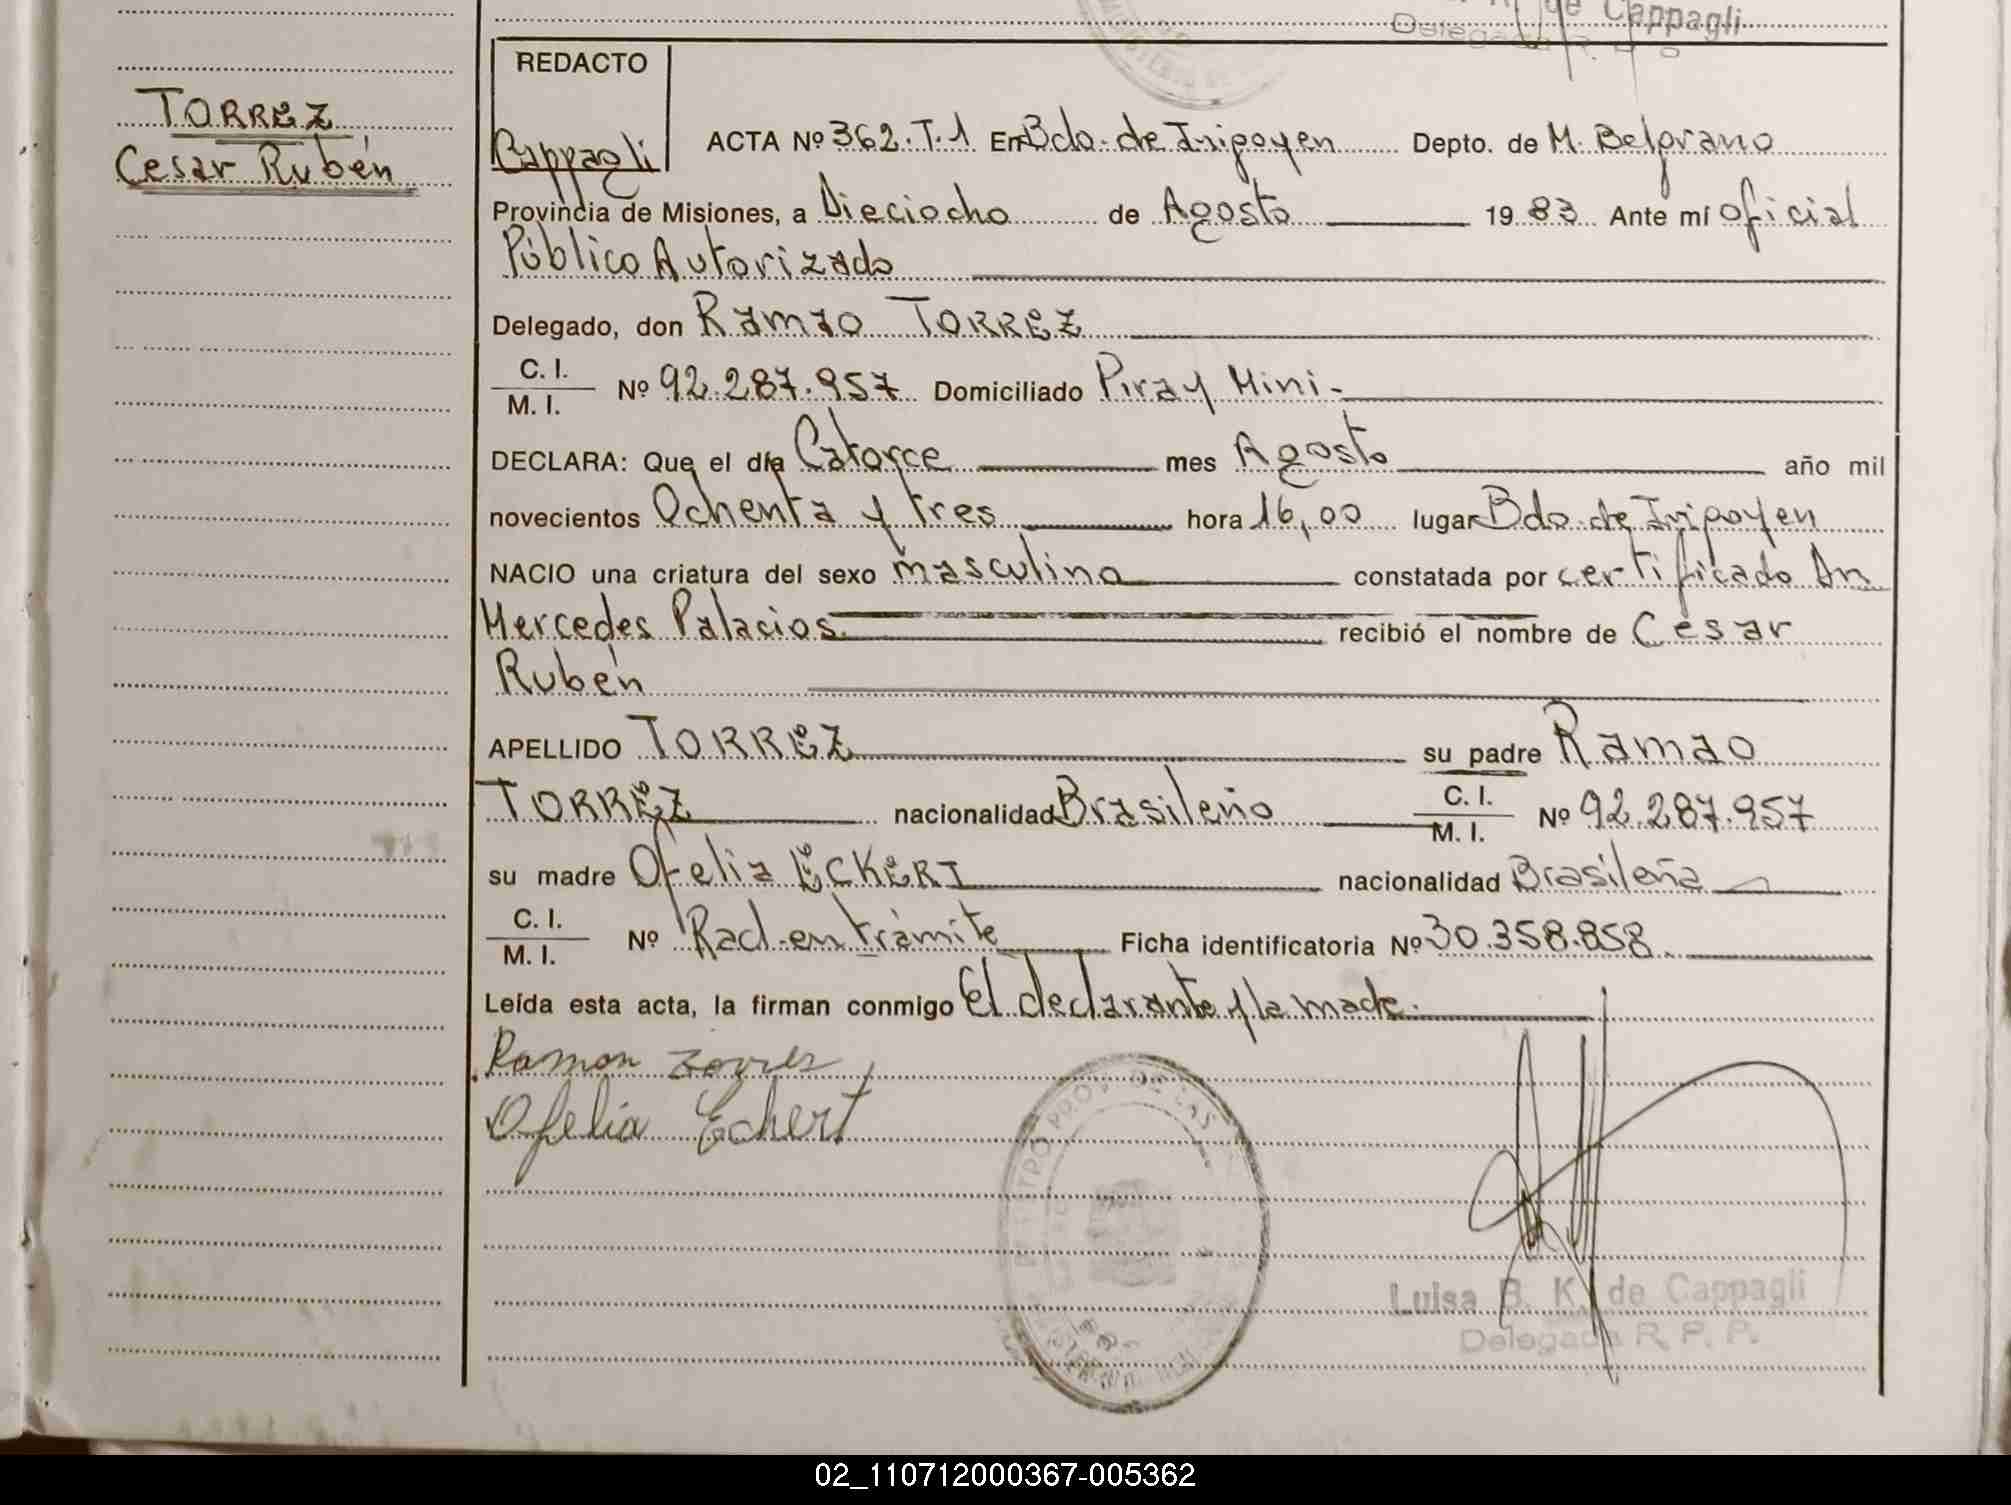 de Cappagli
Delegada R. P. P.
REDACTO
TORREZ
Cesar Rubén
Cappagli
ACTA Nº 362.T.1 En Bdo. de Irigoyen Depto. de M. Belgrano
Provincia de Misiones, a Dieciocho de Agosto 19 83 Ante mí oficial
Público Autorizado
Delegado, don Ramao TORREZ
C. I.
M. I. Nº 92.287.957 Domiciliado Piray Mini-
DECLARA: Que el día Catorce mes Agosto año mil
novecientos Ochenta y tres hora 16,00 lugar Bdo. de Irigoyen
NACIO una criatura del sexo masculino constatada por certificado An
Mercedes Palacios recibió el nombre de César
Rubén
APELLIDO TORREZ su padre Ramao
TORREZ nacionalidad Brasileño C. I.
M. I. Nº 92.287.957
su madre Ofelia ECKERT nacionalidad Brasileña
C. I.
M. I. Nº Rad. en trámite Ficha identificatoria Nº 30.358.858.
Leída esta acta, la firman conmigo El declarante y la madre.
Ramon Torres
Ofelia Echert
Luisa B. K. de Cappagli
Delegada R. P. P.
02_110712000367-005362